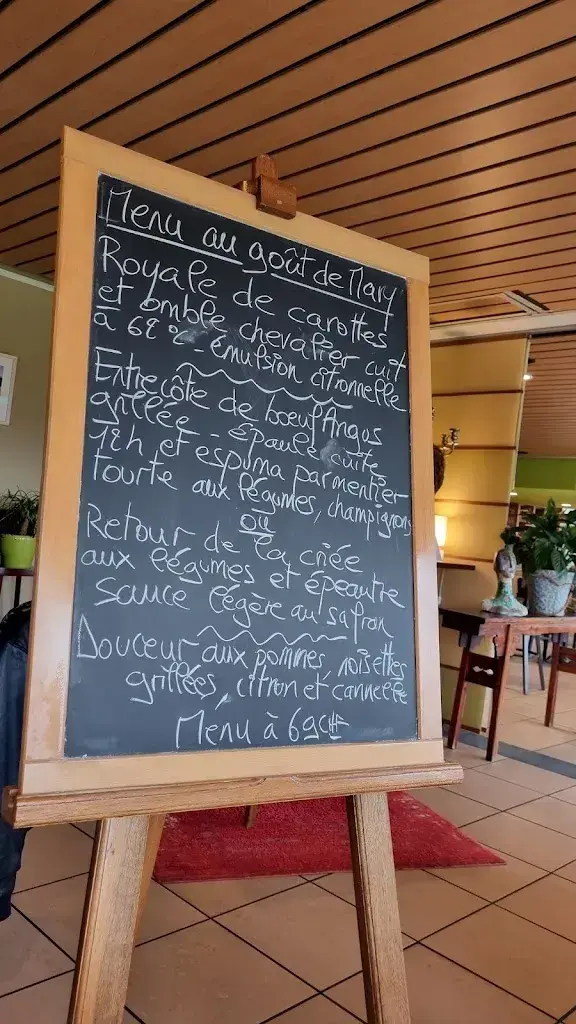 Menu au goût de Mary
Royale de carottes
et omble chevalier cuit
à 62°C - Émulsion citronnelle
Entrecôte de boeuf Angus
grillée - épaule cuite
12h et espuma parmentier
tourte aux légumes, champignons
ou
Retour de la criée
aux légumes et épeautre
sauce légère au safran
Douceur aux pommes, noisettes
grillées, citron et cannelle
Menu à 69CHF